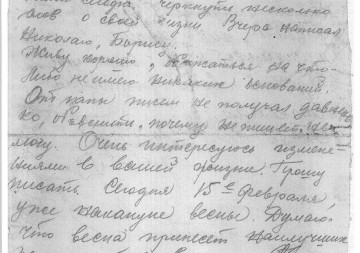 сегодня, черкнуть несколько
слов о своей жизни. Вчера написал
Николаю, Борису.
Живу хорошо, обижаться на что-
либо не имею никаких оснований.
От папы писем не получал давнень-
ко, объясните, почему не пишет, не
могу. Очень интересуюсь измене-
ниями в вашей жизни. Прошу
писать. Сегодня 15е февраля,
уже накануне весны. Думаю,
что весна принесет наилучших